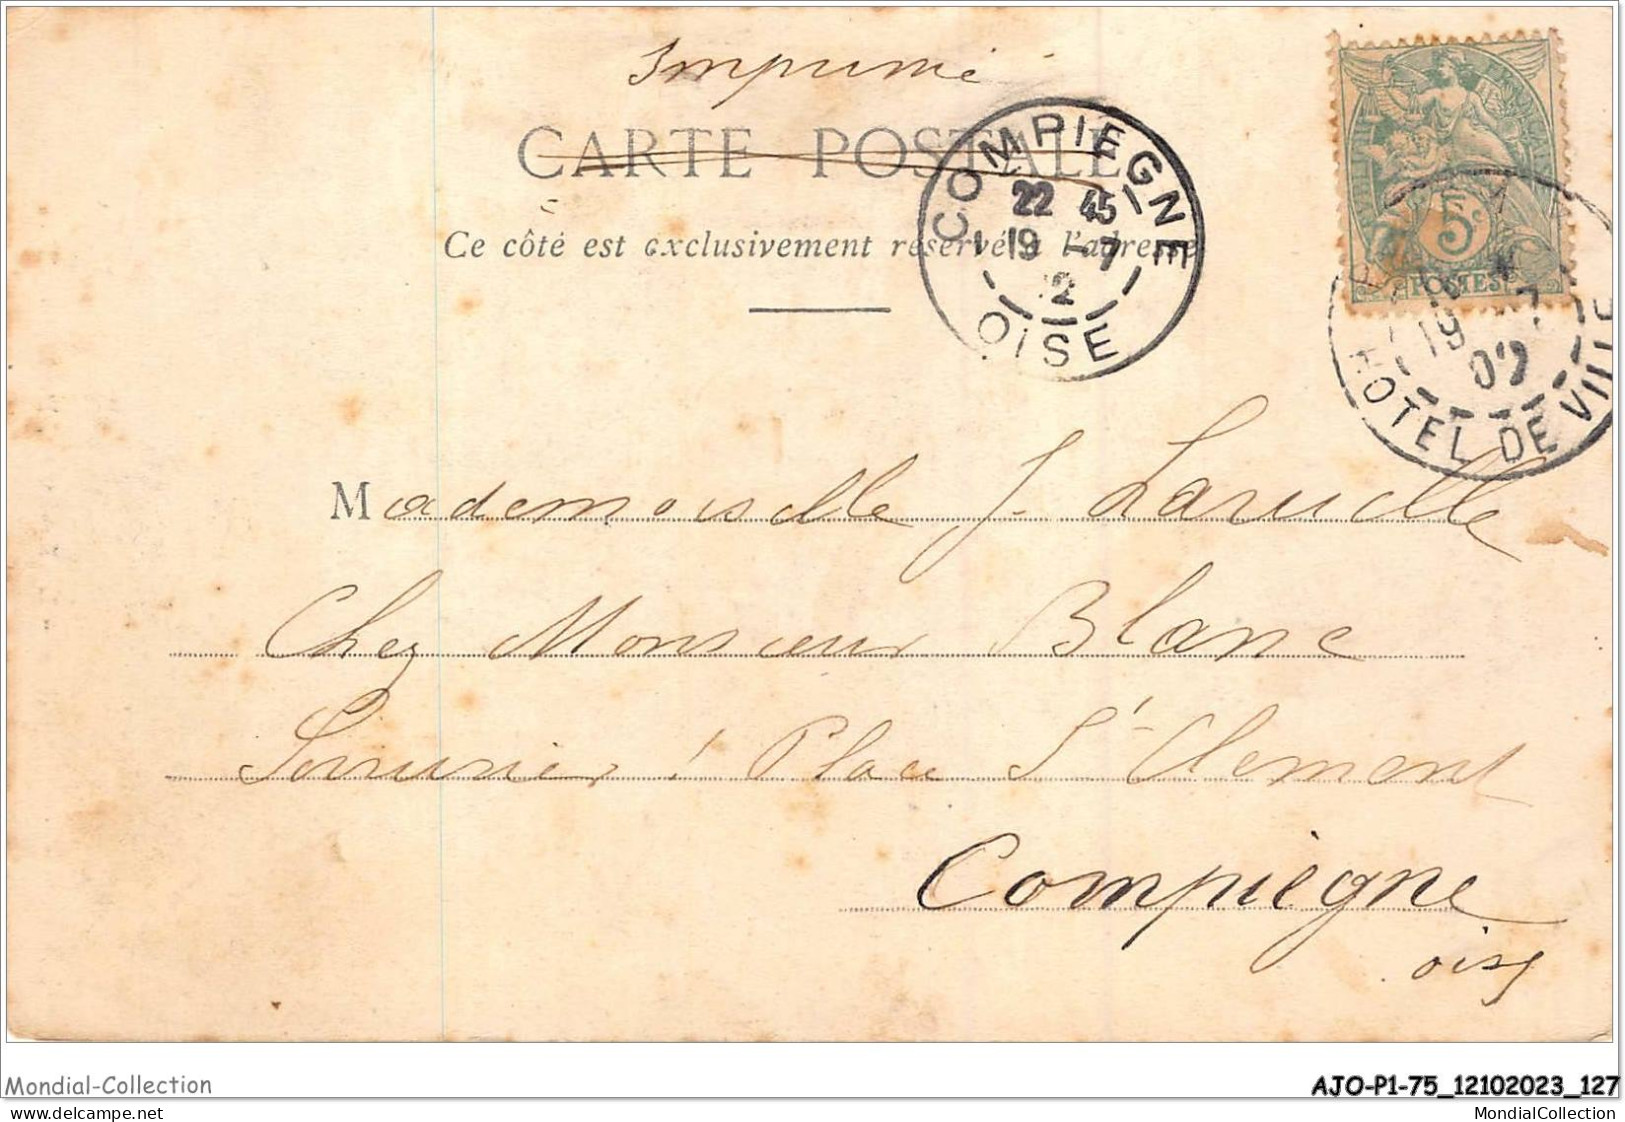 Imprimé
CARTE POSTALE
Ce côté est exclusivement réservé à l'adresse
COMPIEGNE
22 45
19 -7
02
OISE
5c
POSTES
19 7
02
HOTEL DE VILLE
Mademoiselle J. Laruelle
Chez Monsieur Blanc
Serrurier ! Place St Clement
Compiègne
oise
Mondial-Collection
AJO-P1-75_12102023_127
MondialCollection
MondialCollection